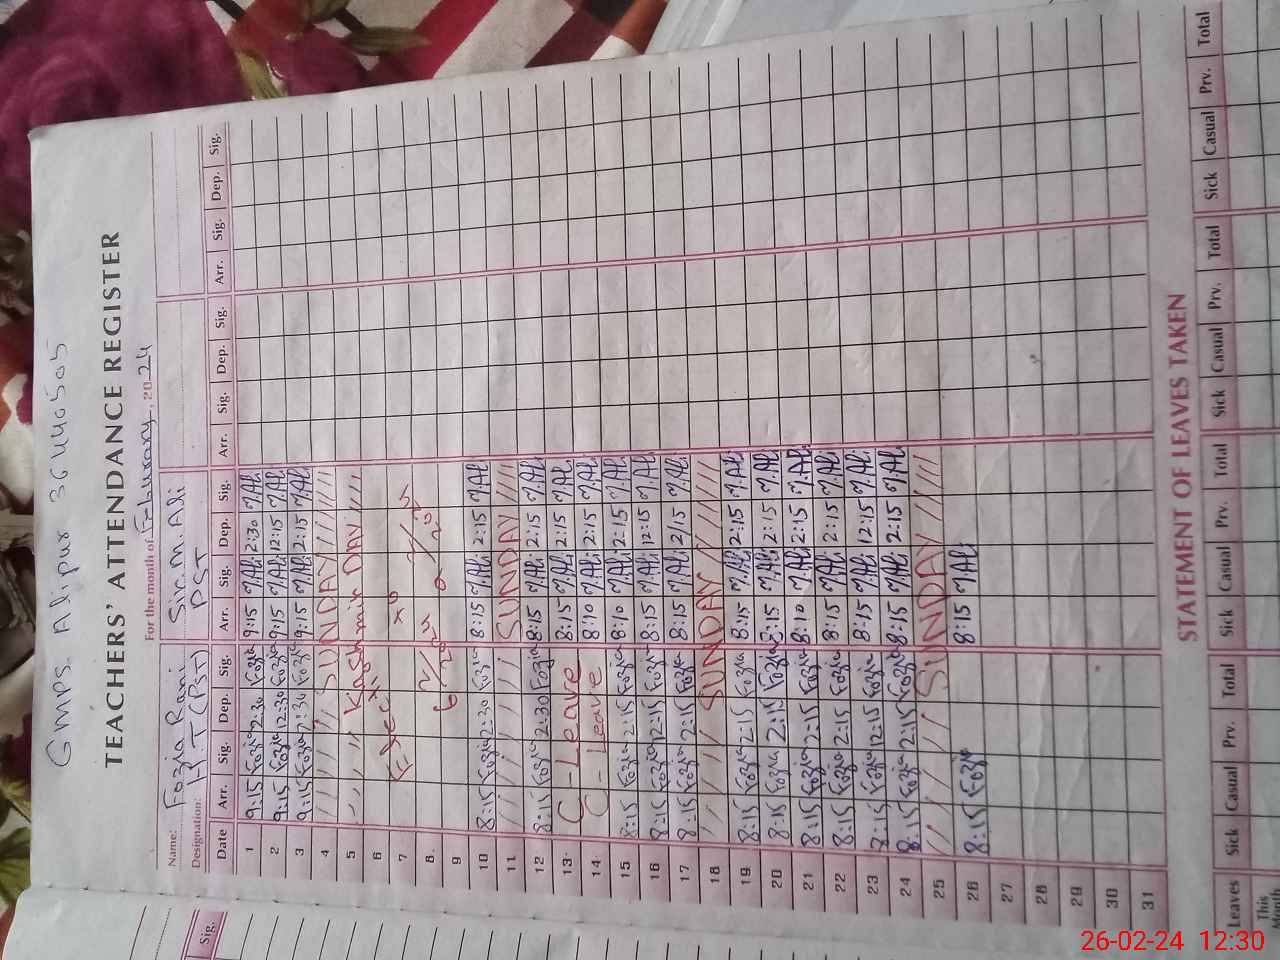 GMPS Alipur 36440505
TEACHERS' ATTENDANCE REGISTER
For the month of February, 2024
Name: Fozia Rami Sic.M.Ali
Designation: H.T (PST) PST
Date Arr. Sig. Dep. Sig. Arr. Sig. Dep. Sig. Arr. Sig. Dep. Sig. Arr. Sig. Dep. Sig.
1 9:15 Fozia 2:30 Fozia 9:15 M.Ali 2:30 M.Ali
2 9:15 Fozia 12:30 Fozia 9:15 M.Ali 12:15 M.Ali
3 9:15 Fozia 2:30 Fozia 9:15 M.Ali 2:15 M.Ali
4 SUNDAY
5 Kashmir DAY
6
7
8
9
10 8:15 Fozia 2:30 Fozia 8:15 M.Ali 2:15 M.Ali
11 SUNDAY
12 8:15 Fozia 2:30 Fozia 8:15 M.Ali 2:15 M.Ali
13 C-Leave 8:15 M.Ali 2:15 M.Ali
14 C-Leave 8:10 M.Ali 2:15 M.Ali
15 8:15 Fozia 2:15 Fozia 8:10 M.Ali 2:15 M.Ali
16 8:15 Fozia 12:15 Fozia 8:15 M.Ali 12:15 M.Ali
17 8:15 Fozia 2:15 Fozia 8:15 M.Ali 2:15 M.Ali
18 SUNDAY
19 8:15 Fozia 2:15 Fozia 8:15 M.Ali 2:15 M.Ali
20 8:15 Fozia 2:15 Fozia 8:15 M.Ali 2:15 M.Ali
21 8:15 Fozia 2:15 Fozia 8:10 M.Ali 2:15 M.Ali
22 8:15 Fozia 2:15 Fozia 8:15 M.Ali 2:15 M.Ali
23 8:15 Fozia 12:15 Fozia 8:15 M.Ali 12:15 M.Ali
24 8:15 Fozia 2:15 Fozia 8:15 M.Ali 2:15 M.Ali
25 SUNDAY
26 8:15 Fozia 8:15 M.Ali
27
28
29
30
31
STATEMENT OF LEAVES TAKEN
Leaves Sick Casual Prv. Total Sick Casual Prv. Total Sick Casual Prv. Total Sick Casual Prv. Total
This
Month
Sig.
26-02-24 12:30